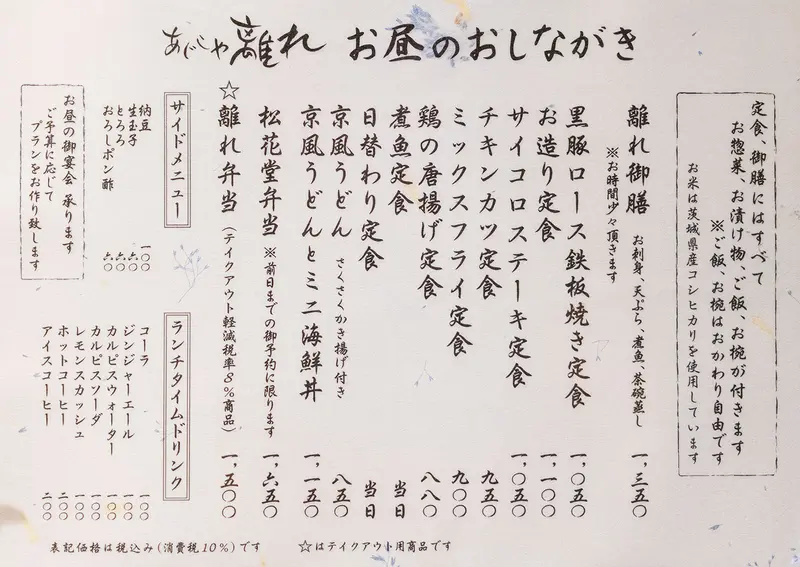 あじしや離れ お昼のおしながき
定食、御膳にはすべて
お惣菜、お漬け物、ご飯、お椀が付きます
※ご飯、お椀はおかわり自由です
お米は茨城県産コシヒカリを使用しています
離れ御膳 お刺身、天ぷら、煮魚、茶碗蒸し 一,三五〇
※お時間少々頂きます
黒豚ロース鉄板焼き定食 一,〇五〇
お造り定食 一,一〇〇
サイコロステーキ定食 一,〇五〇
チキンカツ定食 九五〇
ミックスフライ定食 九〇〇
鶏の唐揚げ定食 八八〇
煮魚定食 当日
日替わり定食 当日
京風うどん さくさくかき揚げ付き 八五〇
京風うどんとミニ海鮮丼 一,一五〇
松花堂弁当 ※前日までの御予約に限ります 一,六五〇
☆離れ弁当 (テイクアウト軽減税率8%商品) 一,五〇〇
サイドメニュー
納豆 一〇〇
生玉子 六〇
とろろ 六〇
おろしポン酢 六〇
ランチタイムドリンク
コーラ 一〇〇
ジンジャーエール 一〇〇
カルピスウォーター 一〇〇
カルピスソーダ 一〇〇
レモンスカッシュ 一〇〇
ホットコーヒー 二〇〇
アイスコーヒー 二〇〇
お昼の御宴会 承ります
ご予算に応じて
プランをお作り致します
表記価格は税込み(消費税10%)です ☆はテイクアウト用商品です